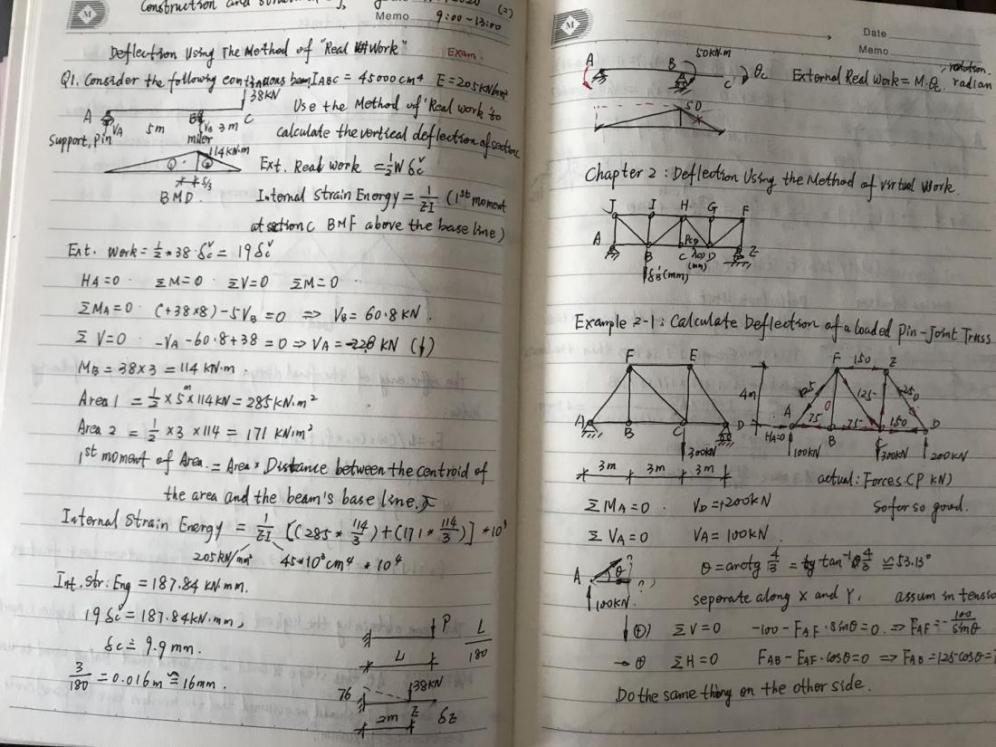 Construction and
(2)
Memo 9:00-13:00
Deflection Using The Method of "Real Work"
Exam.
Q1. Consider the following continuous beam IABC = 45000cm⁴ E = 205kN/mm²
38KN
A VA 5m VB 3m C
Support, Pin
114KN·m
BMD
Use the Method of "Real work" to
calculate the vertical deflection of section
Ext. Real work = ½W δcᵛ
Internal Strain Energy = 1/EI (1st moment
at section C BMF above the base line)
Ext. Work = ½ × 38 · δcᵛ = 19 δcᵛ
HA=0 ΣM=0 ΣV=0 ΣM=0
ΣMA=0 (+38×8)-5VB=0 ⇒ VB=60.8KN.
ΣV=0 -VA-60.8+38=0 ⇒ VA=-22.8 KN (↓)
MB=38×3=114 KN·m
Area 1 = ½ × 5m × 114KN = 285KN·m²
Area 2 = ½ × 3 × 114 = 171 KN·m²
1st moment of Area = Area × Distance between the centroid of
the area and the beam's base line.
Internal Strain Energy = 1/EI [(285 × 114/3)+(171 × 114/3)] × 10³
205KN/mm² 45×10³cm⁴ × 10⁴
Int. Str. Eng = 187.84 KN·mm.
19δc = 187.84KN·mm,
δc = 9.9mm.
3/180 = 0.016m ≈ 16mm.
P L/180
L
76 38KN
2m
Date
Memo
A B 50KN·m C θc
External Real Work = M·θc radian
rotation.
50
Chapter 2: Deflection Using the Method of virtual Work.
J I H G F
A B C D E
(mm)
δB(mm)
Example 2-1: Calculate Deflection of a loaded Pin-Joint Truss
F E
A B C D
300KN
3m 3m 3m
4m
F 150 E
125 0 125 250
A 75 B 75 C 150 D
HA=0 100KN 300KN 200KN
actual: Forces (P KN)
ΣMA=0 VD=200KN So far so good.
ΣVA=0 VA=100KN.
A θ 100KN
θ=arctg 4/3 = tan⁻¹ 4/3 ≌ 53.13°
seperate along X and Y, assum in tension
(+) ΣV=0 -100-FAF·sinθ=0. ⇒ FAF=-100/sinθ
→ (+) ΣH=0 FAB-FAF·cosθ=0 ⇒ FAB=125·cosθ=
Do the same thing on the other side.